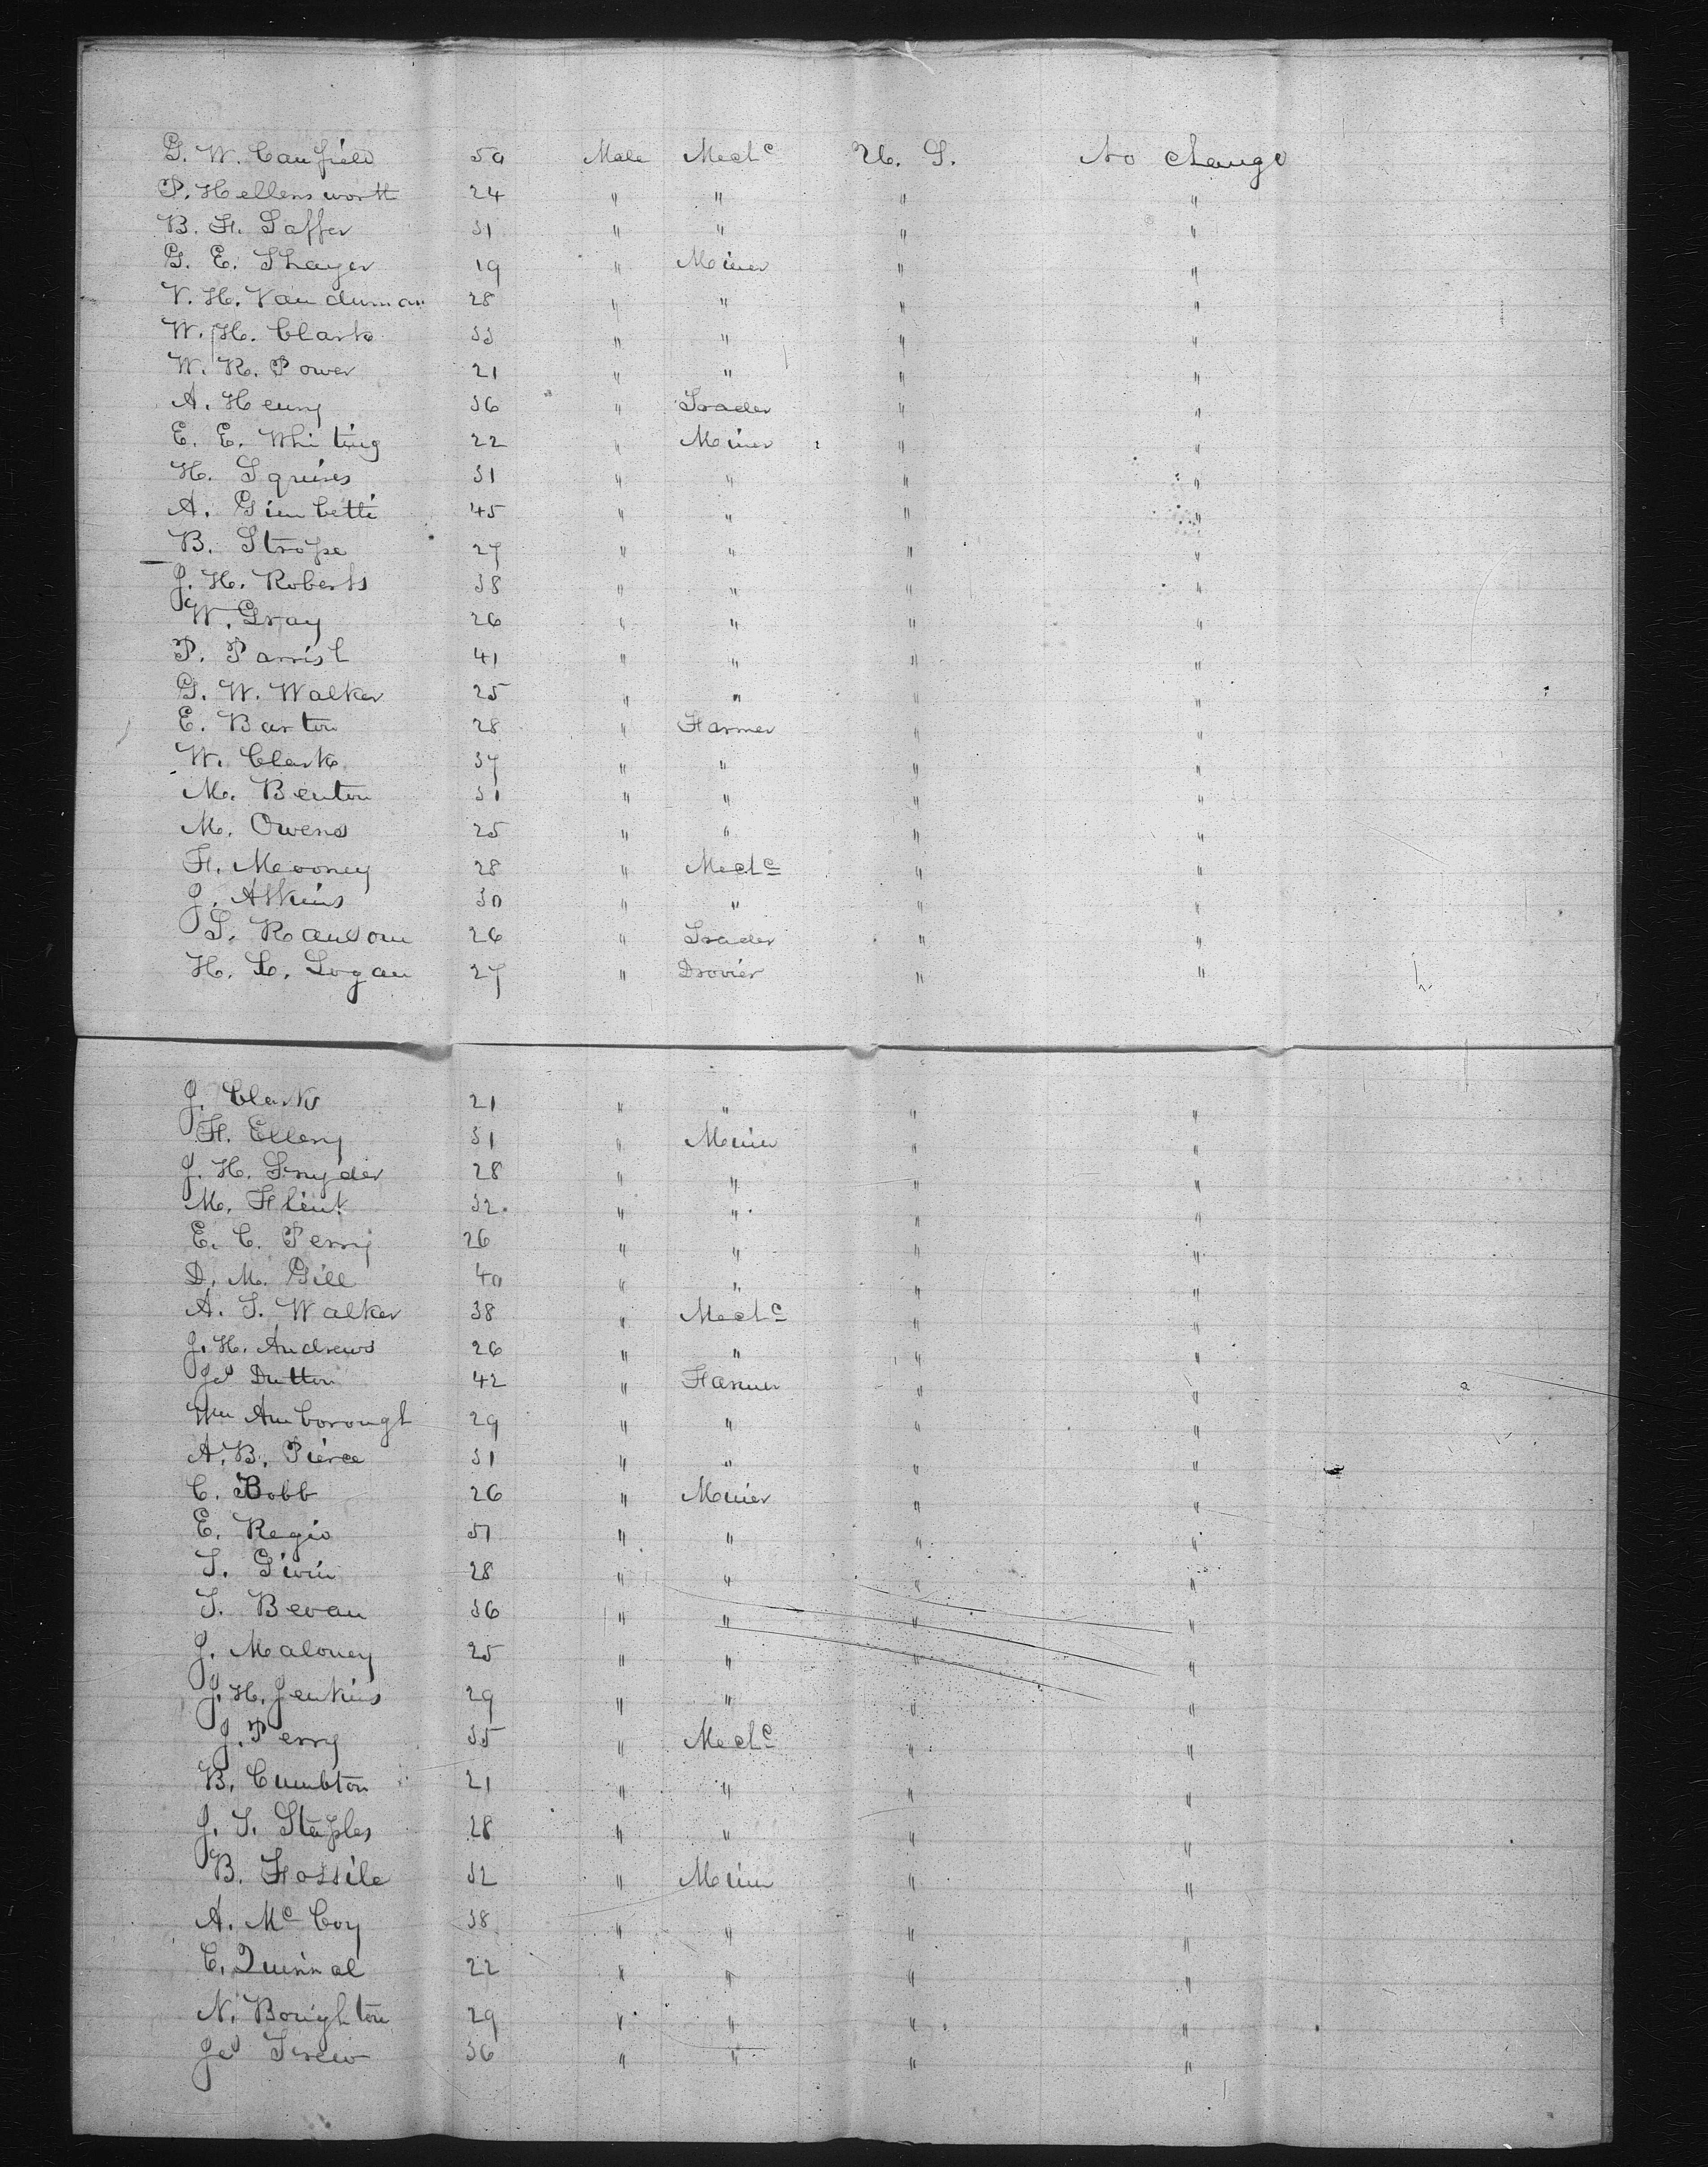 G. W. Canfield 50 Male Mech^c U. S. No change
P. Hellensworth 24 " " " "
B. F. Saffer 31 " " " "
G. E. Thayer 19 " Miner " "
V. H. Vanduman 28 " " " "
W. H. Clark 33 " " " "
W. R. Power 21 " " " "
A. Henry 36 " Trader " "
E. E. Whiting 22 " Miner " "
H. Squires 31 " " " "
A. Gimbetti 45 " " " "
B. Strope 27 " " " "
J. H. Roberts 38 " " " "
W. Gray 26 " " " "
P. Parrish 41 " " " "
G. W. Walker 25 " " " "
E. Barton 28 " Farmer " "
W. Clark 37 " " " "
M. Benton 31 " " " "
M. Owens 25 " " " "
F. Mooney 28 " Mech^c " "
J. Atkins 30 " " " "
S. Ransom 26 " Trader " "
H. L. Logan 27 " Drovier " "
J. Clark 21 " " " "
F. Ellery 31 " Miner " "
J. H. Snyder 28 " " " "
M. Flint 32 " " " "
E. C. Perry 26 " " " "
D. M. Gill 40 " " " "
A. T. Walker 38 " Mech^c " "
J. H. Andrews 26 " " " "
Js Dutton 42 " Farmer " "
Wm Amborough 29 " " " "
A. B. Pierce 31 " " " "
C. Bobb 26 " Miner " "
E. Regio 51 " " " "
T. Givin 28 " " " "
T. Bevan 36 " " " "
J. Maloney 25 " " " "
J. H. Jenkins 29 " " " "
J. Perry 35 " Mech^c " "
B. Cumbton 21 " " " "
J. T. Staples 28 " " " "
B. Fossile 32 " Miner " "
A. McCoy 38 " " " "
C. Quinnal 22 " " " "
N. Boughton 29 " " " "
Js Trew 36 " " " "